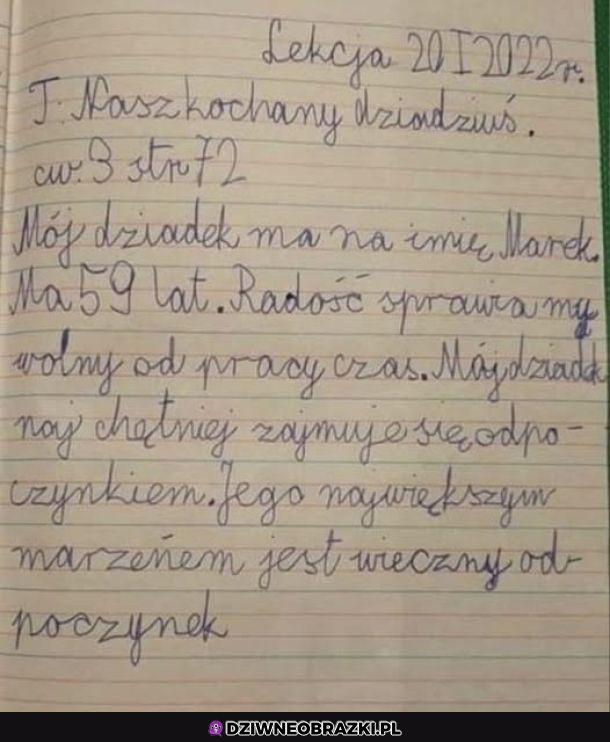 Lekcja 20 I 2022r.
T: Nasz kochany dziadziuś.
ćw. 3 str 72
Mój dziadek ma na imię Marek.
Ma 59 lat. Radość sprawia my
wolny od pracy czas. Mój dziadek
naj chętniej zajmuje się odpo-
czynkiem. Jego największym
marzeńem jest wieczny od-
poczynek
DZIWNEOBRAZKI.PL